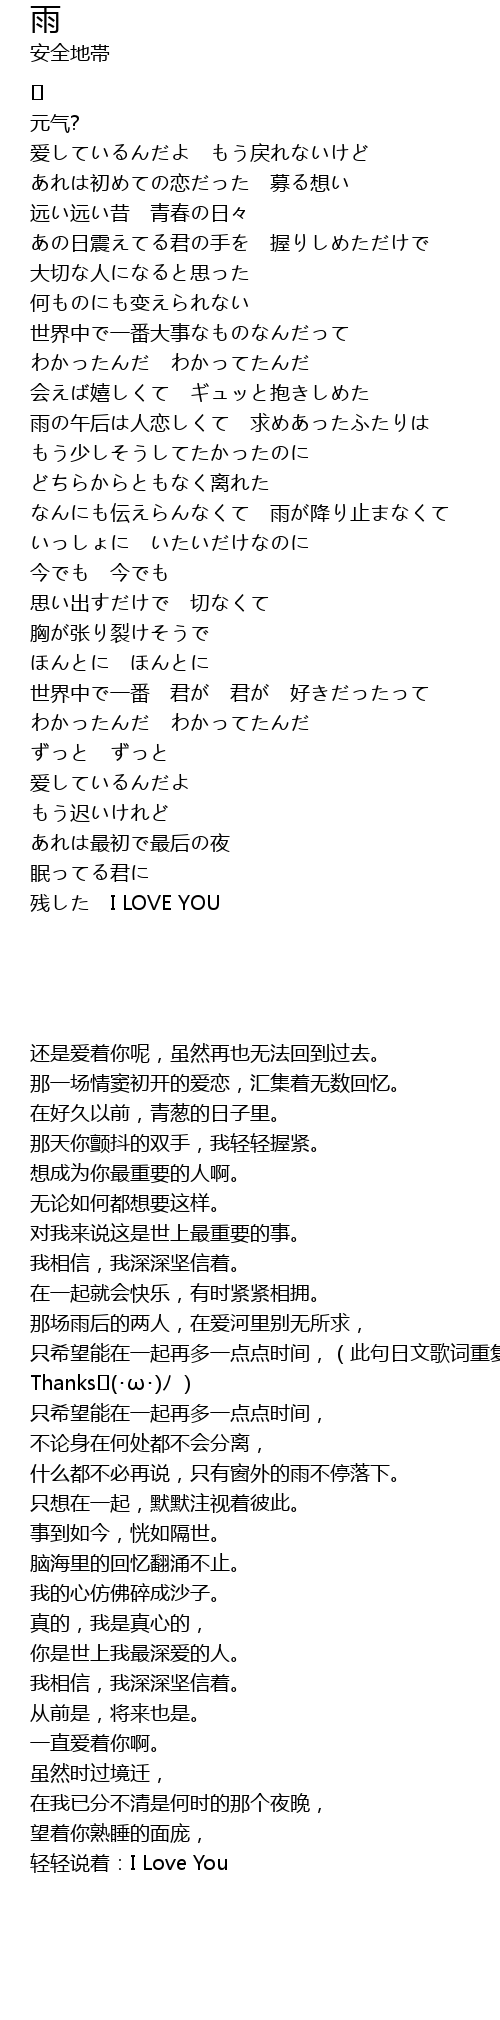 雨
安全地帯
元气?
爱しているんだよ　もう戻れないけど
あれは初めての恋だった　募る想い
远い远い昔　青春の日々
あの日震えてる君の手を　握りしめただけで
大切な人になると思った
何ものにも变えられない
世界中で一番大事なものなんだって
わかったんだ　わかってたんだ
会えば嬉しくて　ギュッと抱きしめた
雨の午后は人恋しくて　求めあったふたりは
もう少しそうしてたかったのに
どちらからともなく离れた
なんにも伝えらんなくて　雨が降り止まなくて
いっしょに　いたいだけなのに
今でも　今でも
思い出すだけで　切なくて
胸が张り裂けそうで
ほんとに　ほんとに
世界中で一番　君が　君が　好きだったって
わかったんだ　わかってたんだ
ずっと　ずっと
爱しているんだよ
もう迟いけれど
あれは最初で最后の夜
眠ってる君に
残した　I LOVE YOU
还是爱着你呢，虽然再也无法回到过去。
那一场情窦初开的爱恋，汇集着无数回忆。
在好久以前，青葱的日子里。
那天你颤抖的双手，我轻轻握紧。
想成为你最重要的人啊。
无论如何都想要这样。
对我来说这是世上最重要的事。
我相信，我深深坚信着。
在一起就会快乐，有时紧紧相拥。
那场雨后的两人，在爱河里别无所求，
只希望能在一起再多一点点时间，（此句日文歌词重复
Thanks(·ω·)ﾉ ）
只希望能在一起再多一点点时间，
不论身在何处都不会分离，
什么都不必再说，只有窗外的雨不停落下。
只想在一起，默默注视着彼此。
事到如今，恍如隔世。
脑海里的回忆翻涌不止。
我的心仿佛碎成沙子。
真的，我是真心的，
你是世上我最深爱的人。
我相信，我深深坚信着。
从前是，将来也是。
一直爱着你啊。
虽然时过境迁，
在我已分不清是何时的那个夜晚，
望着你熟睡的面庞，
轻轻说着：I Love You